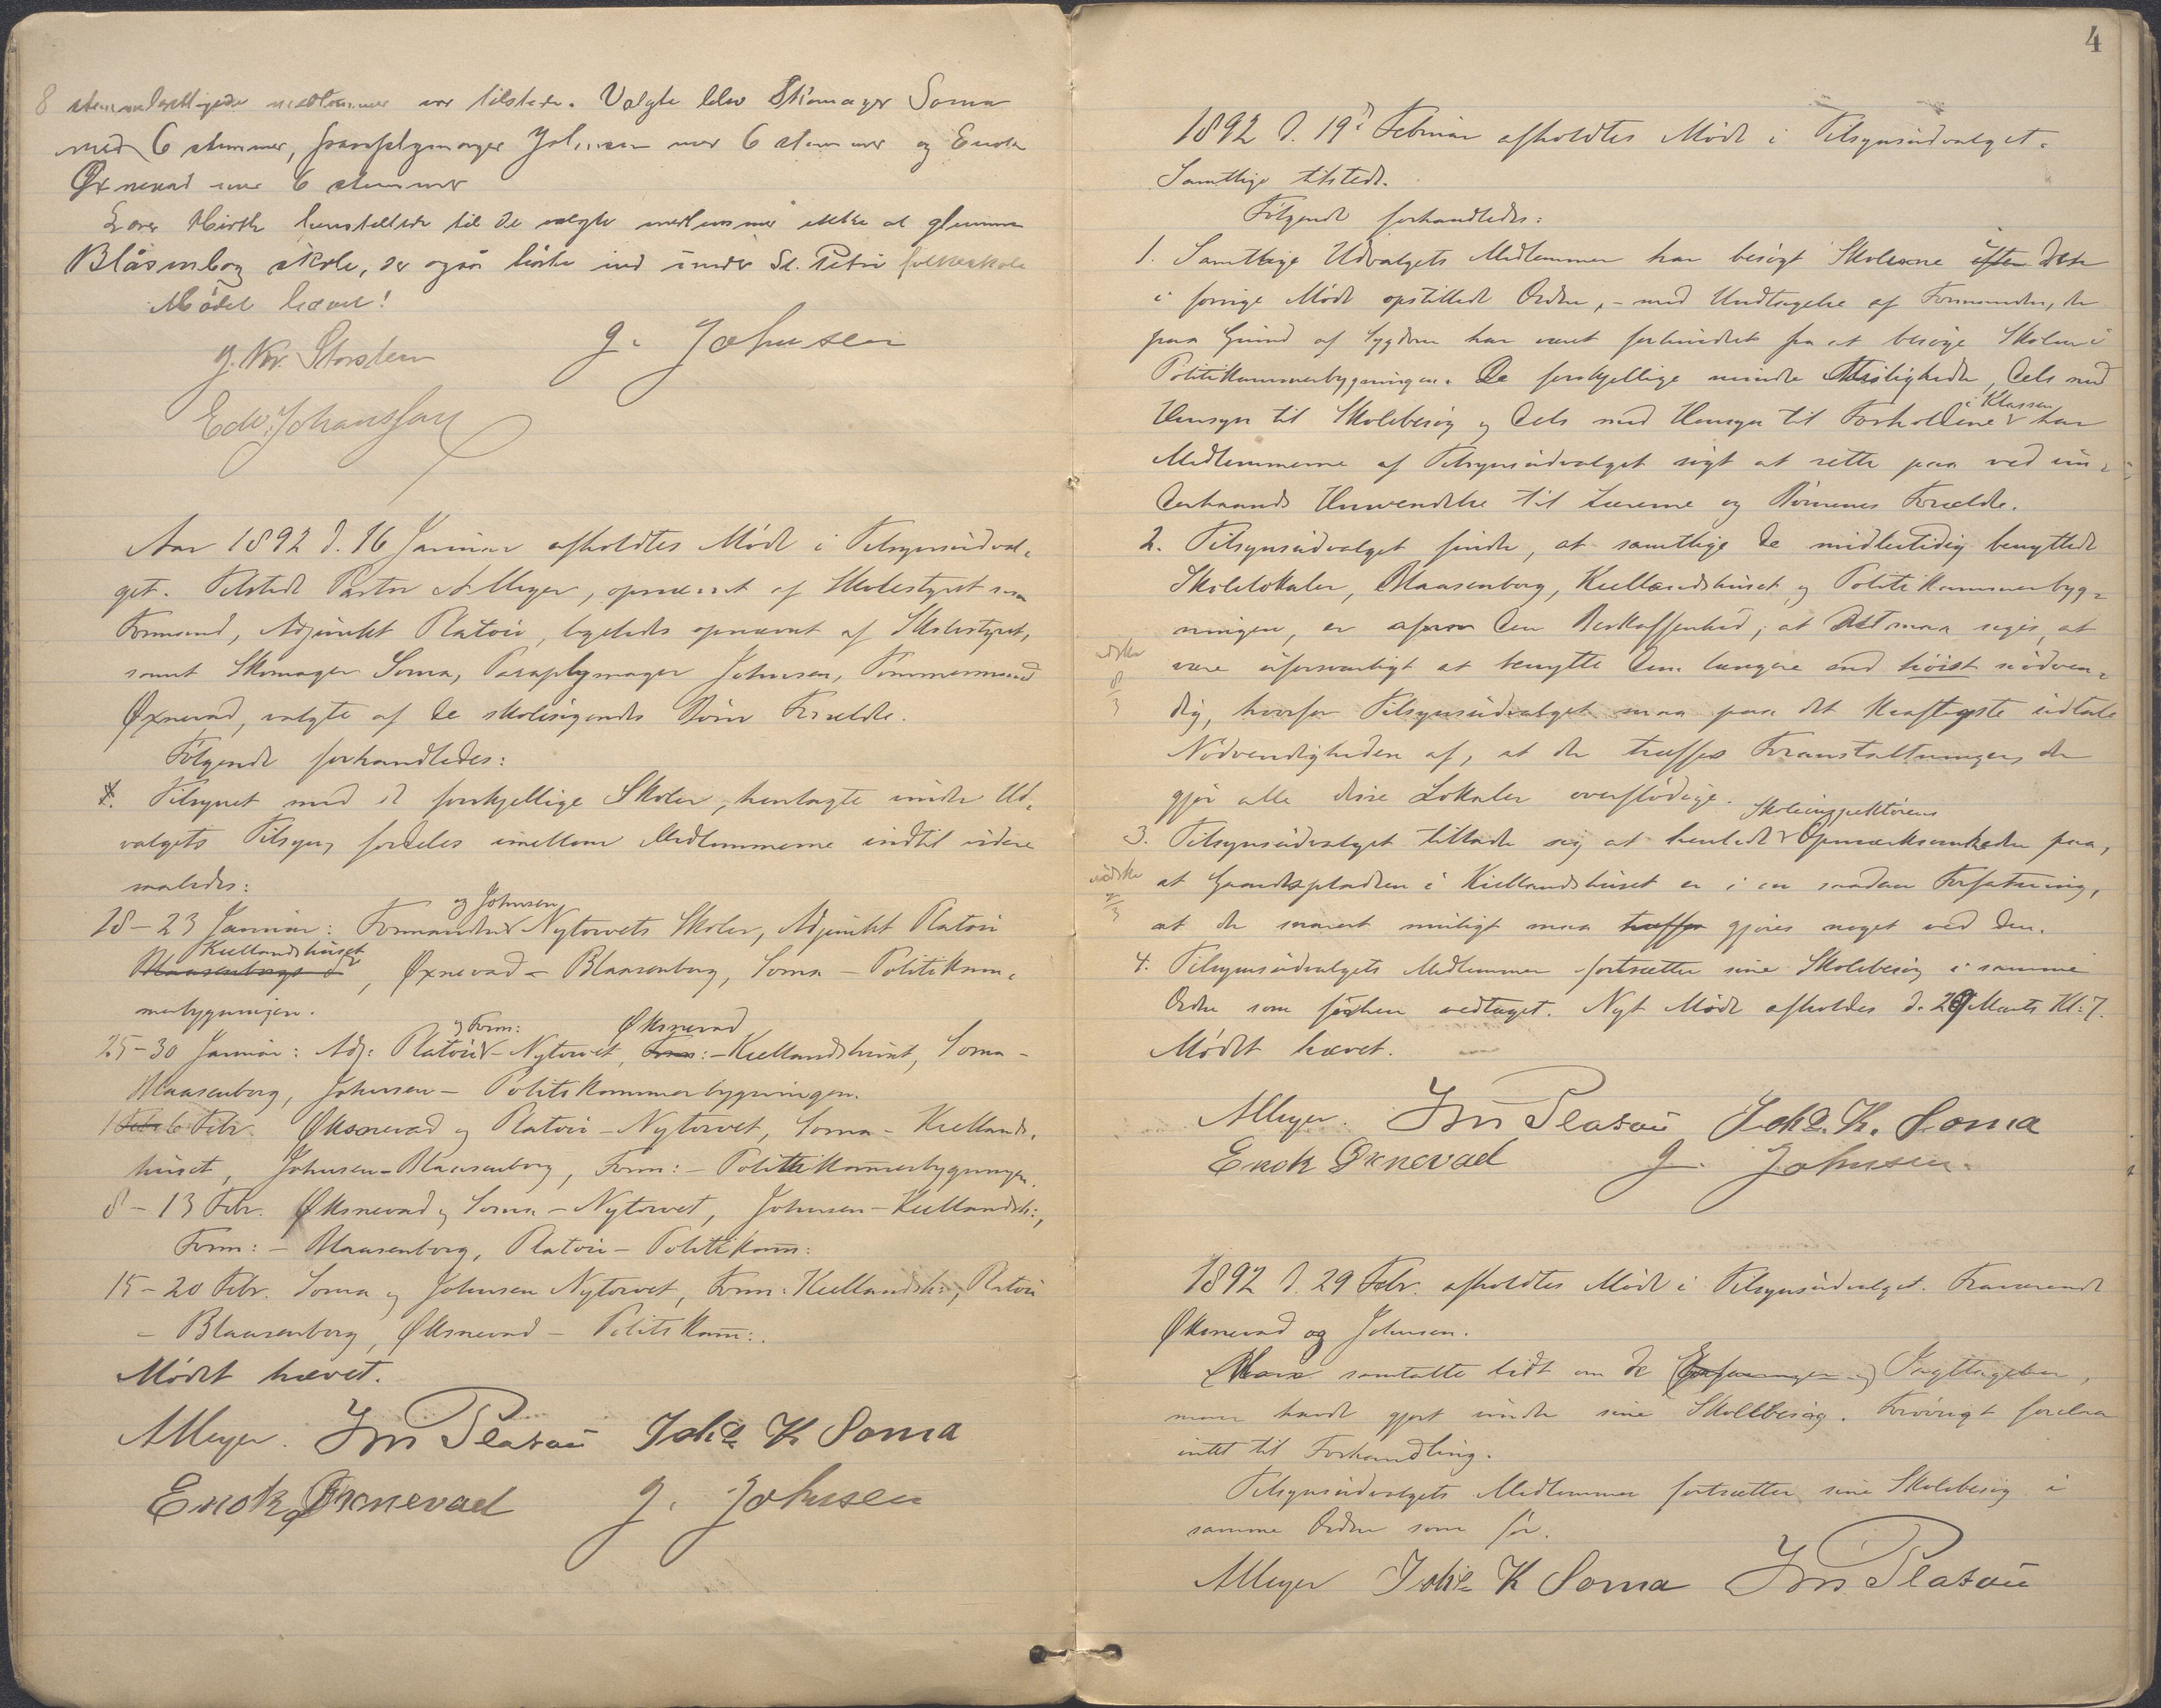 8 stemmeberettigede medlemmer var tilstede. Valgte blev Skomager Soma
med 6 stemmer, paraplymager Johnsen med 6 stemmer og Enok
Øxnevad med 6 stemmer
Lærer Hirth henstillede til de valgte medlemmer ikke at glemme
Blåsenborg skole, der også hørte ind under St. Petri folkeskole
Mødet hævet!
J. Kr. Storsteen
J. Johnsen
Edv. Johanssen
Aar 1892 d. 16 Januar afholdtes Møde i Tilsynsudval-
get. Tilstede Pastor A Meyer, opnævnt af Skolestyret som
Formand, Adjunkt Platou, ligeledes opnævnt af Skolestyret,
samt Skomager Soma, Paraplymager Johnsen, Tømmermand
Øxnevad, valgte af de skolesøgende Børns Forældre.
Følgende forhandledes:
1. Tilsynet med de forskjellige Skoler, henlagte under Ud-
valgets Tilsyn, fordeles imellem Medlemmerne indtil videre
saaledes:
og Johnsen
18-23 Januar: Formanden Nytorvets Skoler, Adjunkt Platou
Kiellandshuset
Blaasenborg, Øxnevad - Blaasenborg, Soma - Politikam-
merbygningen.
og Form: Øksnevad
25-30 Januar: Adj: Platou - Nytorvet, Form: - Kiellandshuset, Soma -
Blaasenborg, Johnsen - Politikammerbygningen.
1 Feb 6 Febr. Øksnevad og Platou - Nytorvet, Soma - Kiellands-
huset, Johnsen - Blaasenborg, Form: - Politikam̄erbygningen.
8 - 13 Febr. Øksnevad og Soma - Nytorvet, Johnsen - Kiellandsh:,
Form: - Blaasenborg, Platou - Politikam̄:
15 - 20 Febr. Soma og Johnsen Nytorvet, Form: Kiellandsh:, Platou
- Blaasenborg, Øksnevad - Politikam̄:.
Mødet hævet.
AMeyer. Jm Platou Johs K Soma
Enok Øxnevad J. Johnsen
4
1892 d. 19de Februar afholdtes Møde i Tilsynsudvalget.
Samtlige tilstede.
Følgende forhandledes:
1. Samtlige Udvalgets Medlemmer har besøgt Skolerne efter den
i forrige Møde opstillede Orden, - med Undtagelse af Formanden, der
paa Grund af Sygdom har været forhindret fra at besøge Skolen i
Politikammerbygningen. De forskjellige mindre Misligheder, dels med
i Klassen
Hensyn til Skolebesøg og dels med Hensyn til Forholdene har
Medlemmerne af Tilsynsudvalget søgt at rette paa ved un-
derhaands Henvendelse til Lærerne og Børnenes Forældre.
2. Tilsynsudvalget finder, at samtlige de midlertidig benyttede
Skolelokaler, Blaasenborg, Kiellandshuset og Politikammerbyg-
ningen, er af den Beskaffenhed, at det maa siges, at
være uforsvarligt at benytte dem længere end høist nødven-
8/3
dig, hvorfor Tilsynsudvalget maa paa det kraftigste udtale
Nødvendigheden af, at der træffes Foranstaltninger, der
gjør alle disse Lokaler overflødige.
Skoleinspektørens
3. Tilsynsudvalget tillader sig at henlede Opmærksomheden paa,
at Gaardspladsen i Kiellandshuset er i en saadan Forfatning,
at der snarest muligt maa træffes gjøres noget ved den.
4. Tilsynsudvalgets Medlemmer fortsætter sine Skolebesøg i samme
Orden som før vedtaget. Nyt Møde afholdes d. 29 Marts Kl: 7.
Mødet hævet.
AMeyer. Jm Platou Johs. K. Soma
Enok Øxnevad J. Johnsen.
1892 d. 29 Febr. afholdtes Møde i Tilsynsudvalget. Fraværende
Øksnevad og Johnsen.
Man samtalte lidt om de Erfaringer og Iagttagelser,
man havde gjort under sine Skolebesøg. Forøvrigt forelaa
intet til Forhandling.
Tilsynsudvalgets Medlemmer fortsætter sine Skolebesøg i
samme Orden som før.
AMeyer Johs K Soma Jm Platou